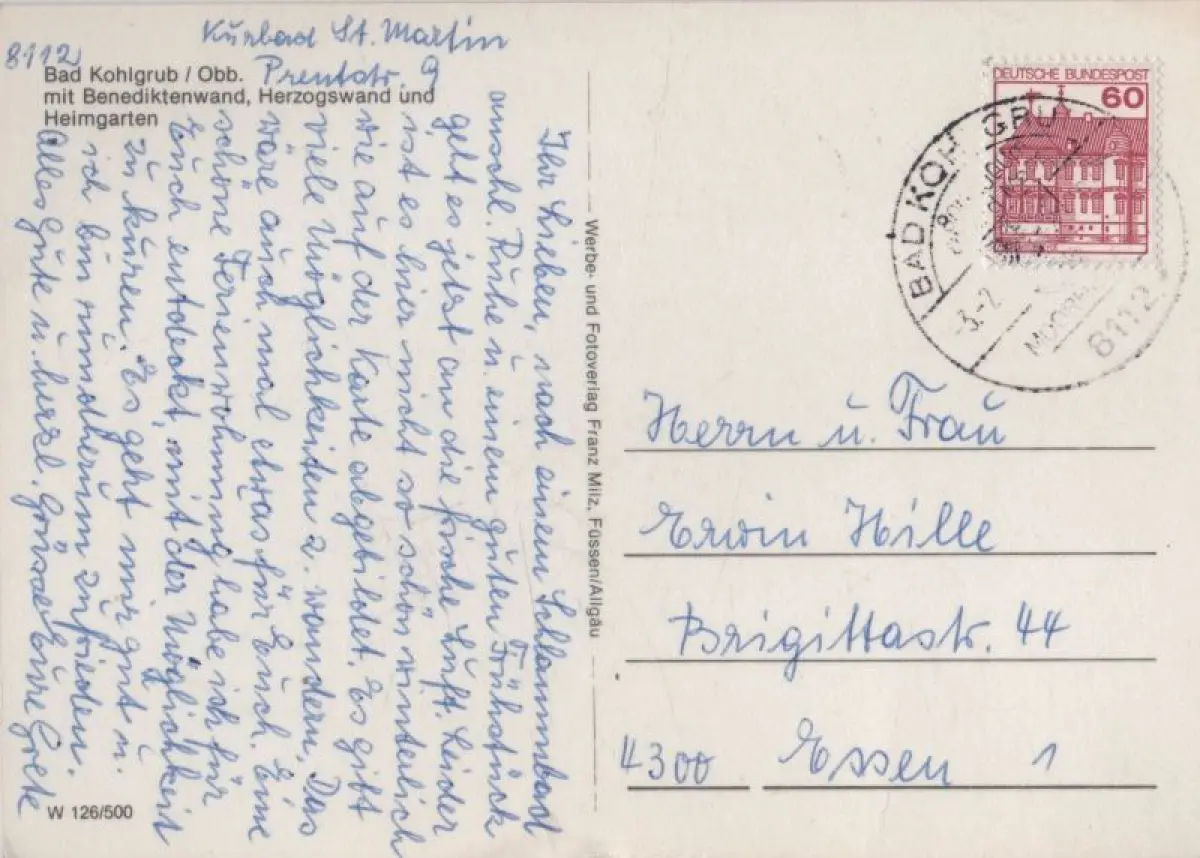 Kurbad St. Martin
8112
Prentstr. 9
Bad Kohlgrub / Obb.
mit Benediktenwand, Herzogswand und
Heimgarten
Ihr Lieben, nach einem Schlammbad
anschl. Ruhe u. einem guten Frühstück
geht es jetzt an die frische Luft. Leider
ist es hier nicht so schön winterlich
wie auf der Karte abgebildet. Es gibt
viele Möglichkeiten z. wandern. Das
wäre auch mal etwas für Euch. Eine
schöne Ferienwohnung habe ich für
Euch entdeckt, mit der Möglichkeit
zu kuren. Es geht mir gut u.
ich bin rundherum zufrieden.
Alles Gute u. herzl. Grüsse Eure Grete
W 126/500
Werbe- und Fotoverlag Franz Milz, Füssen/Allgäu
DEUTSCHE BUNDESPOST
60
BAD KOHLGRU
-3.-2
8112
Herrn u. Frau
Erwin Hille
Brigittastr. 44
4300 Essen 1